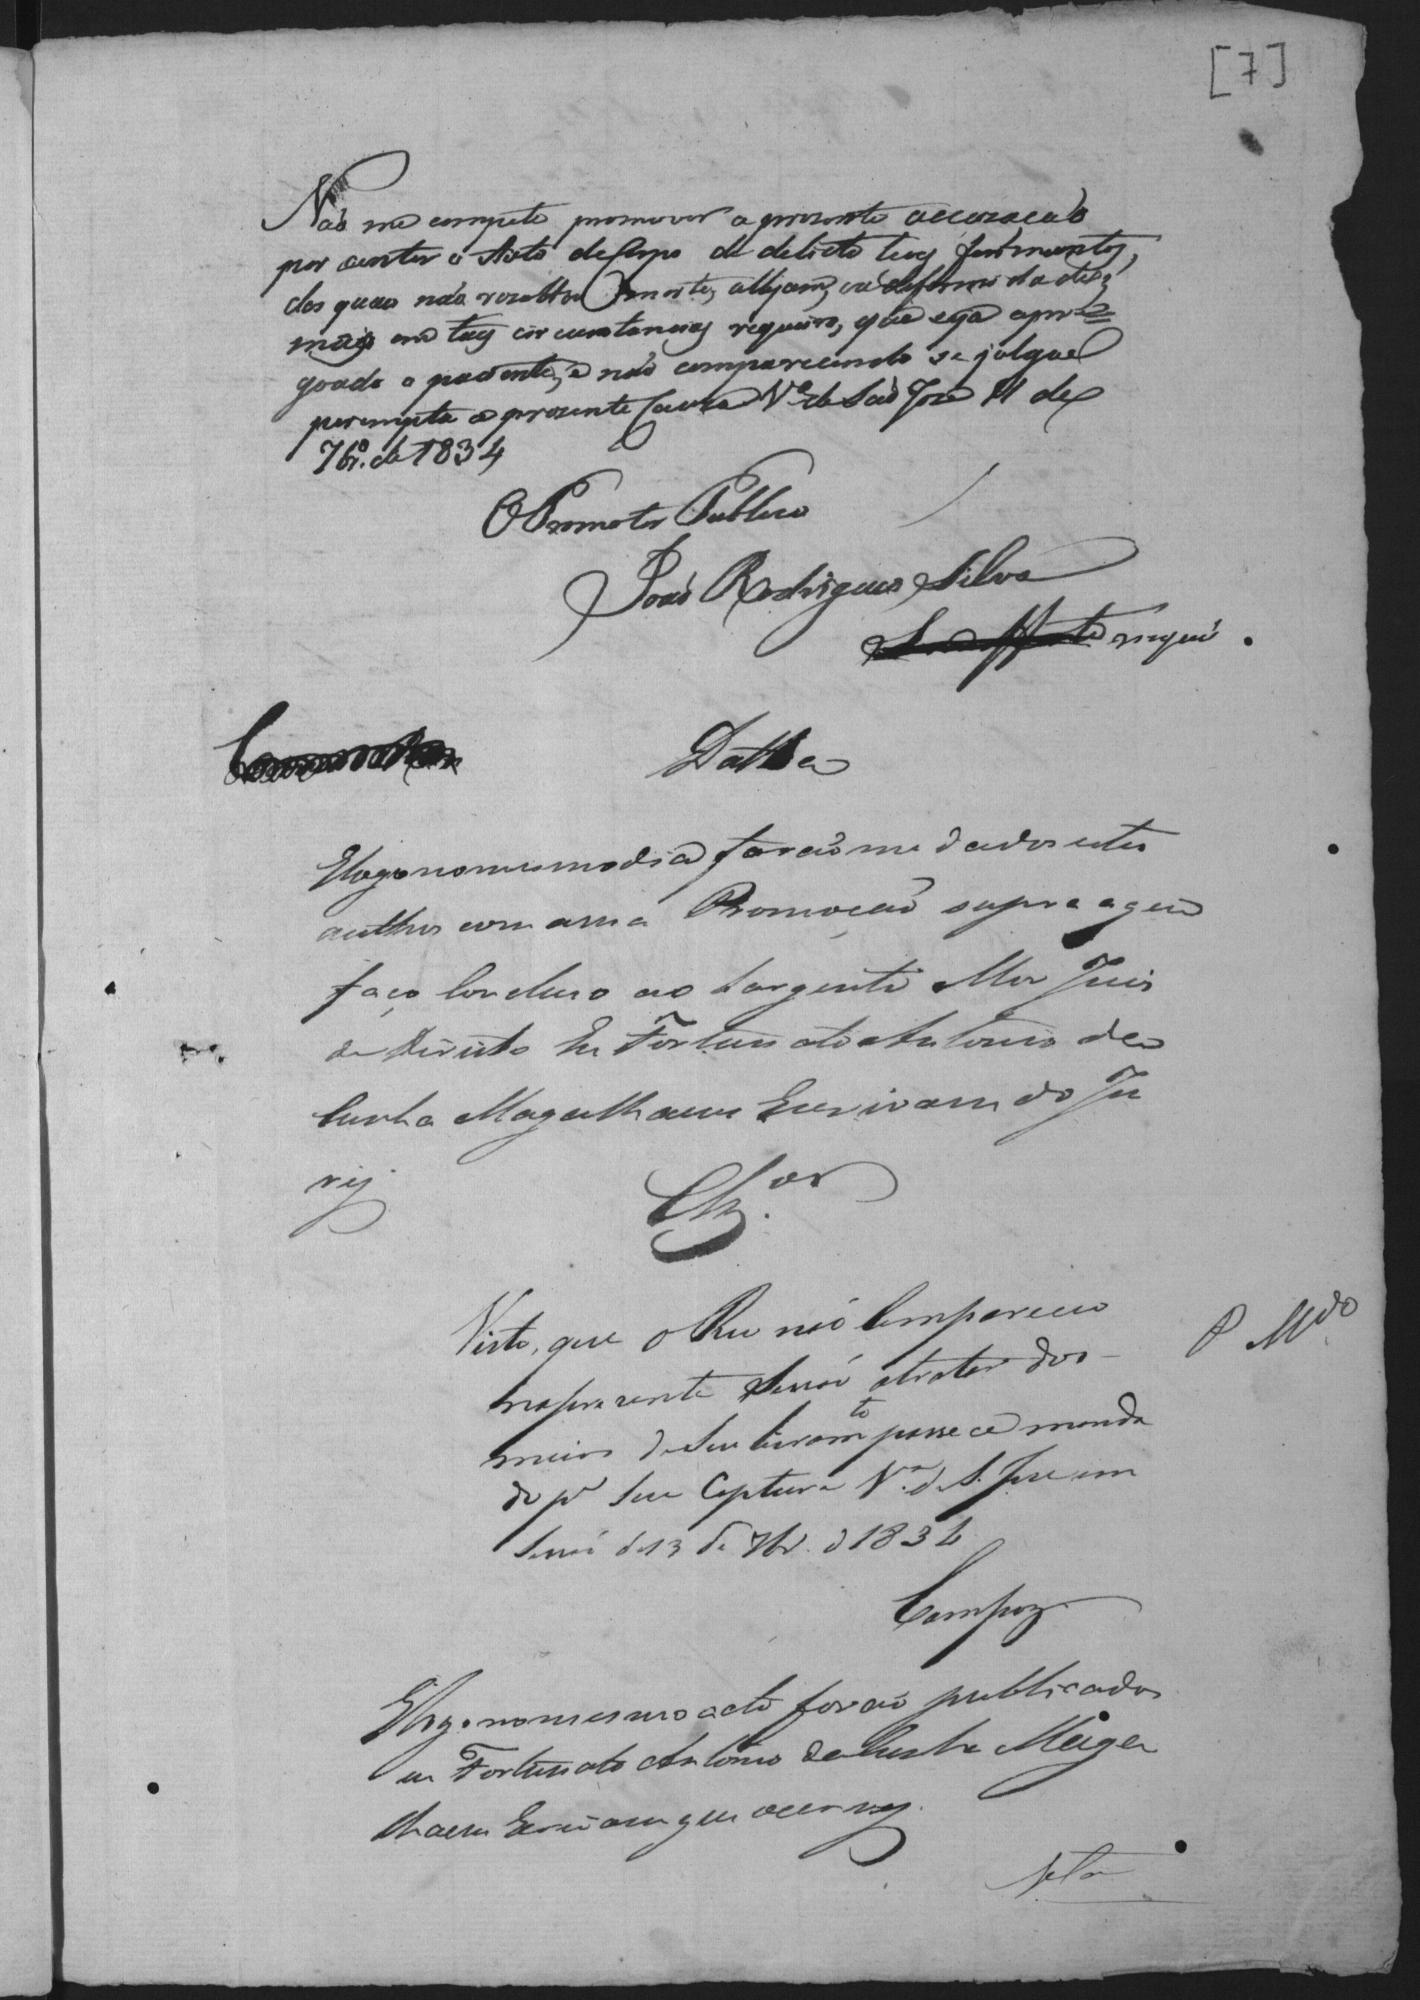 [7]
Não me compete promover a prezente accuzação
por conter o Auto de Corpo de delicto leves ferimentos,
dos quaes não rezultou morte, alleijam, ou deformidades;
mas em taes circunstancias requeiro, que seja apre=
goado o paciente, e não comparecendo se julgue
perempta a prezente Cauza V.ª de São Jozé 11 de
7br.º de 1834
O Promotor Publico
João Rodrigues Silva
Datta
E logo no mesmo dia forão me dados estes
authos com a sua Promoção supra e que
faço Concluzo ao Sargento Mor Juis
de Direito Eu Fortunato Antonio da
Cunha Magalhaens Escrivam do Ju
rij
Clz.os
Visto, que o Reu não Compareceu
na prezente Sessão a tratar dos
meios de Seu livram.to passe ce manda
do p.a Sua Captura V.ª de S. Joze em
Sessão de 13 de 7br. d 1834
P. M.do
Campoz
E logo no mesmo acto forão publicados
eu Fortunato Antonio da Cunha Maga
lhaens Escrivam que escrevy